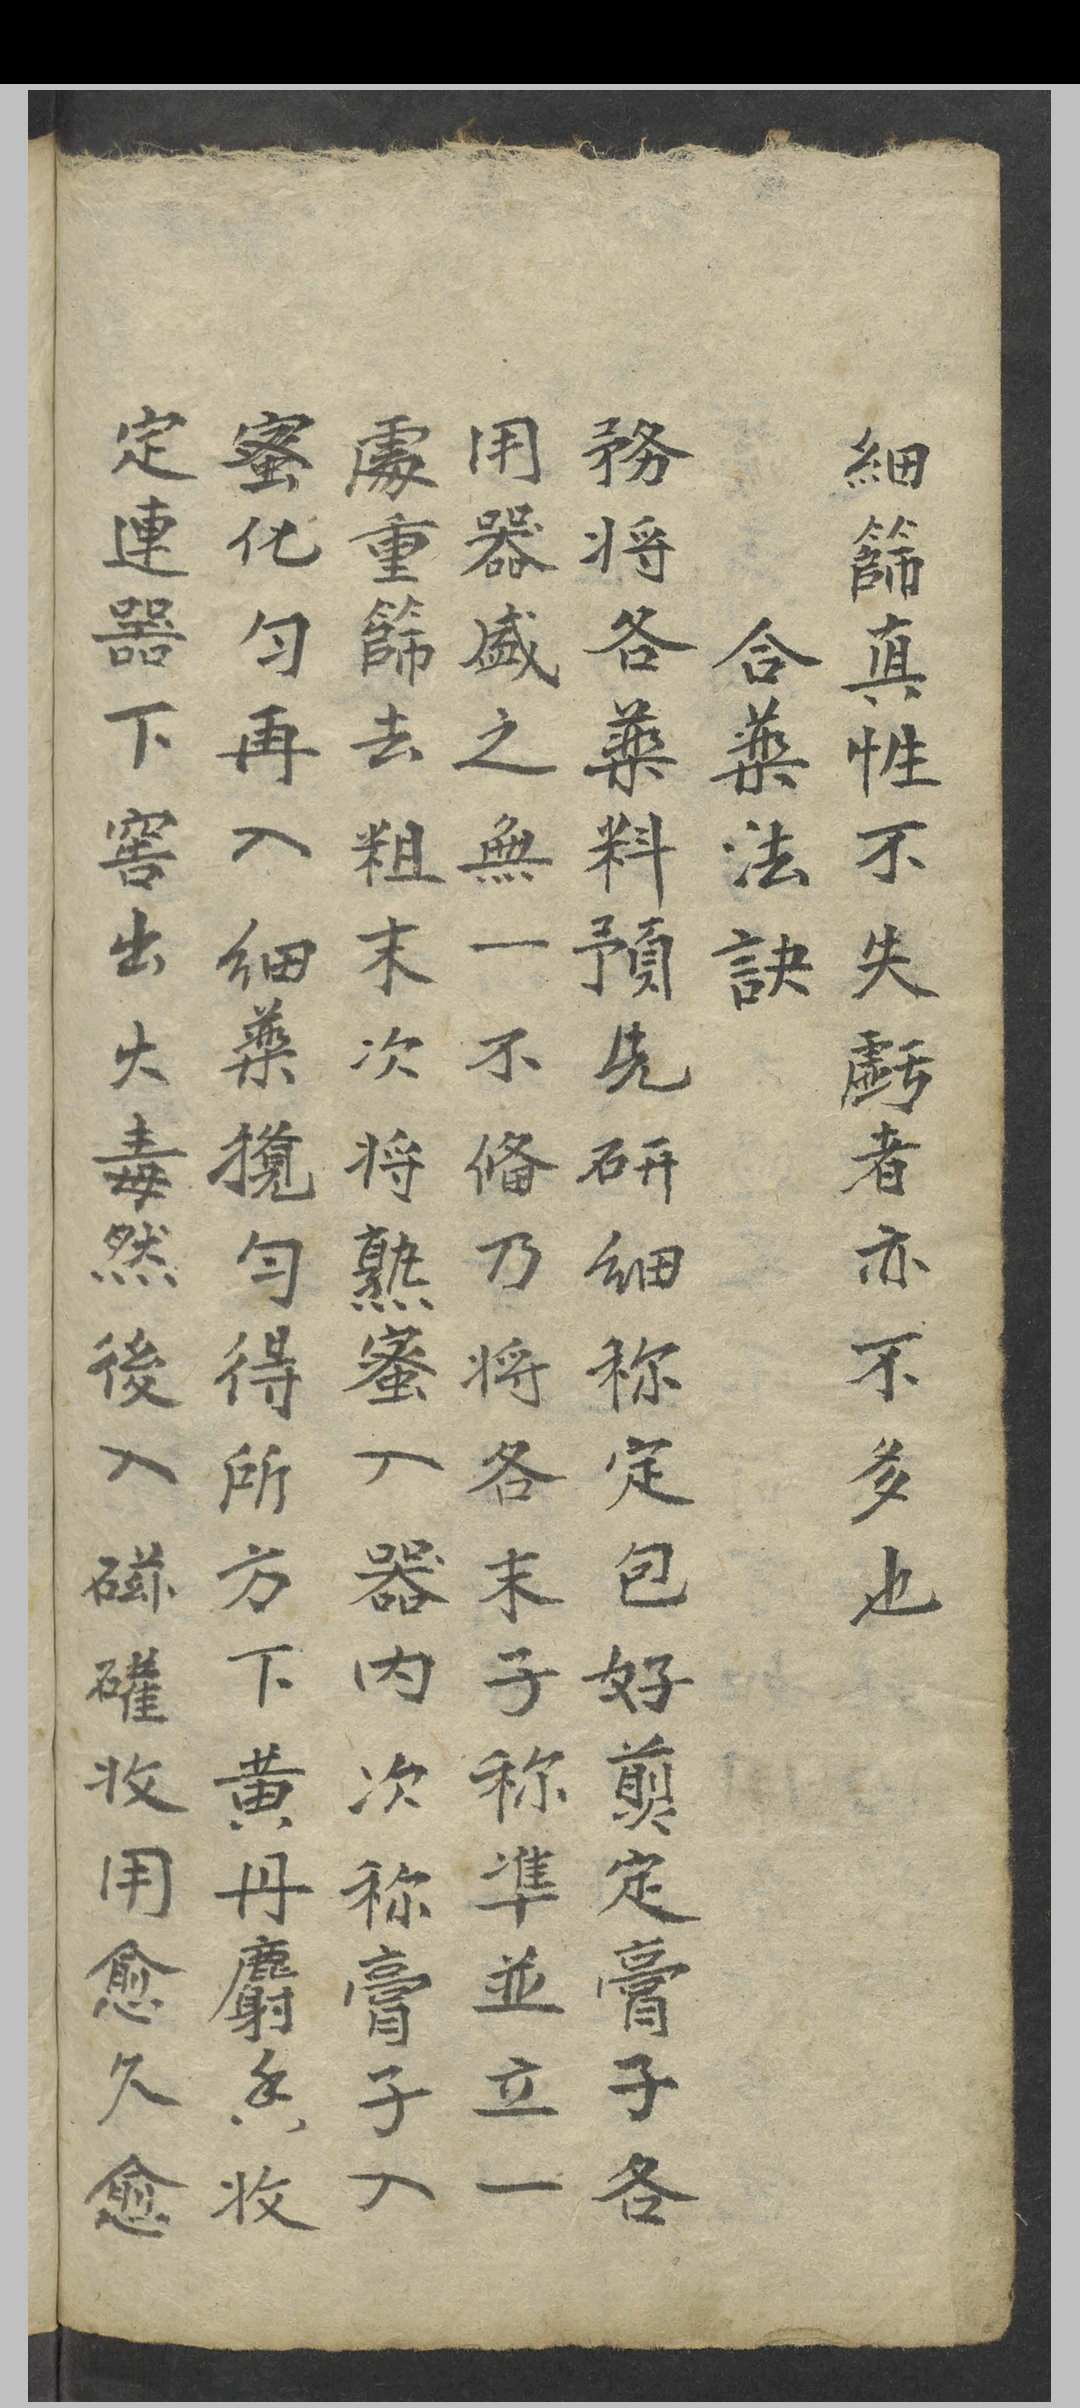 細篩真性不失虧者亦不多也
合藥法訣
務将各藥料預先研細称定包好剪定膏子各
用器盛之無一不俻乃将各末子称準並立一
處重篩去粗末次将熟蜜入器内次称膏子入
蜜化匀再入細藥攪匀得所方下黄丹麝香收
定連噐下窖出火毒然後入磁礶收用愈久愈